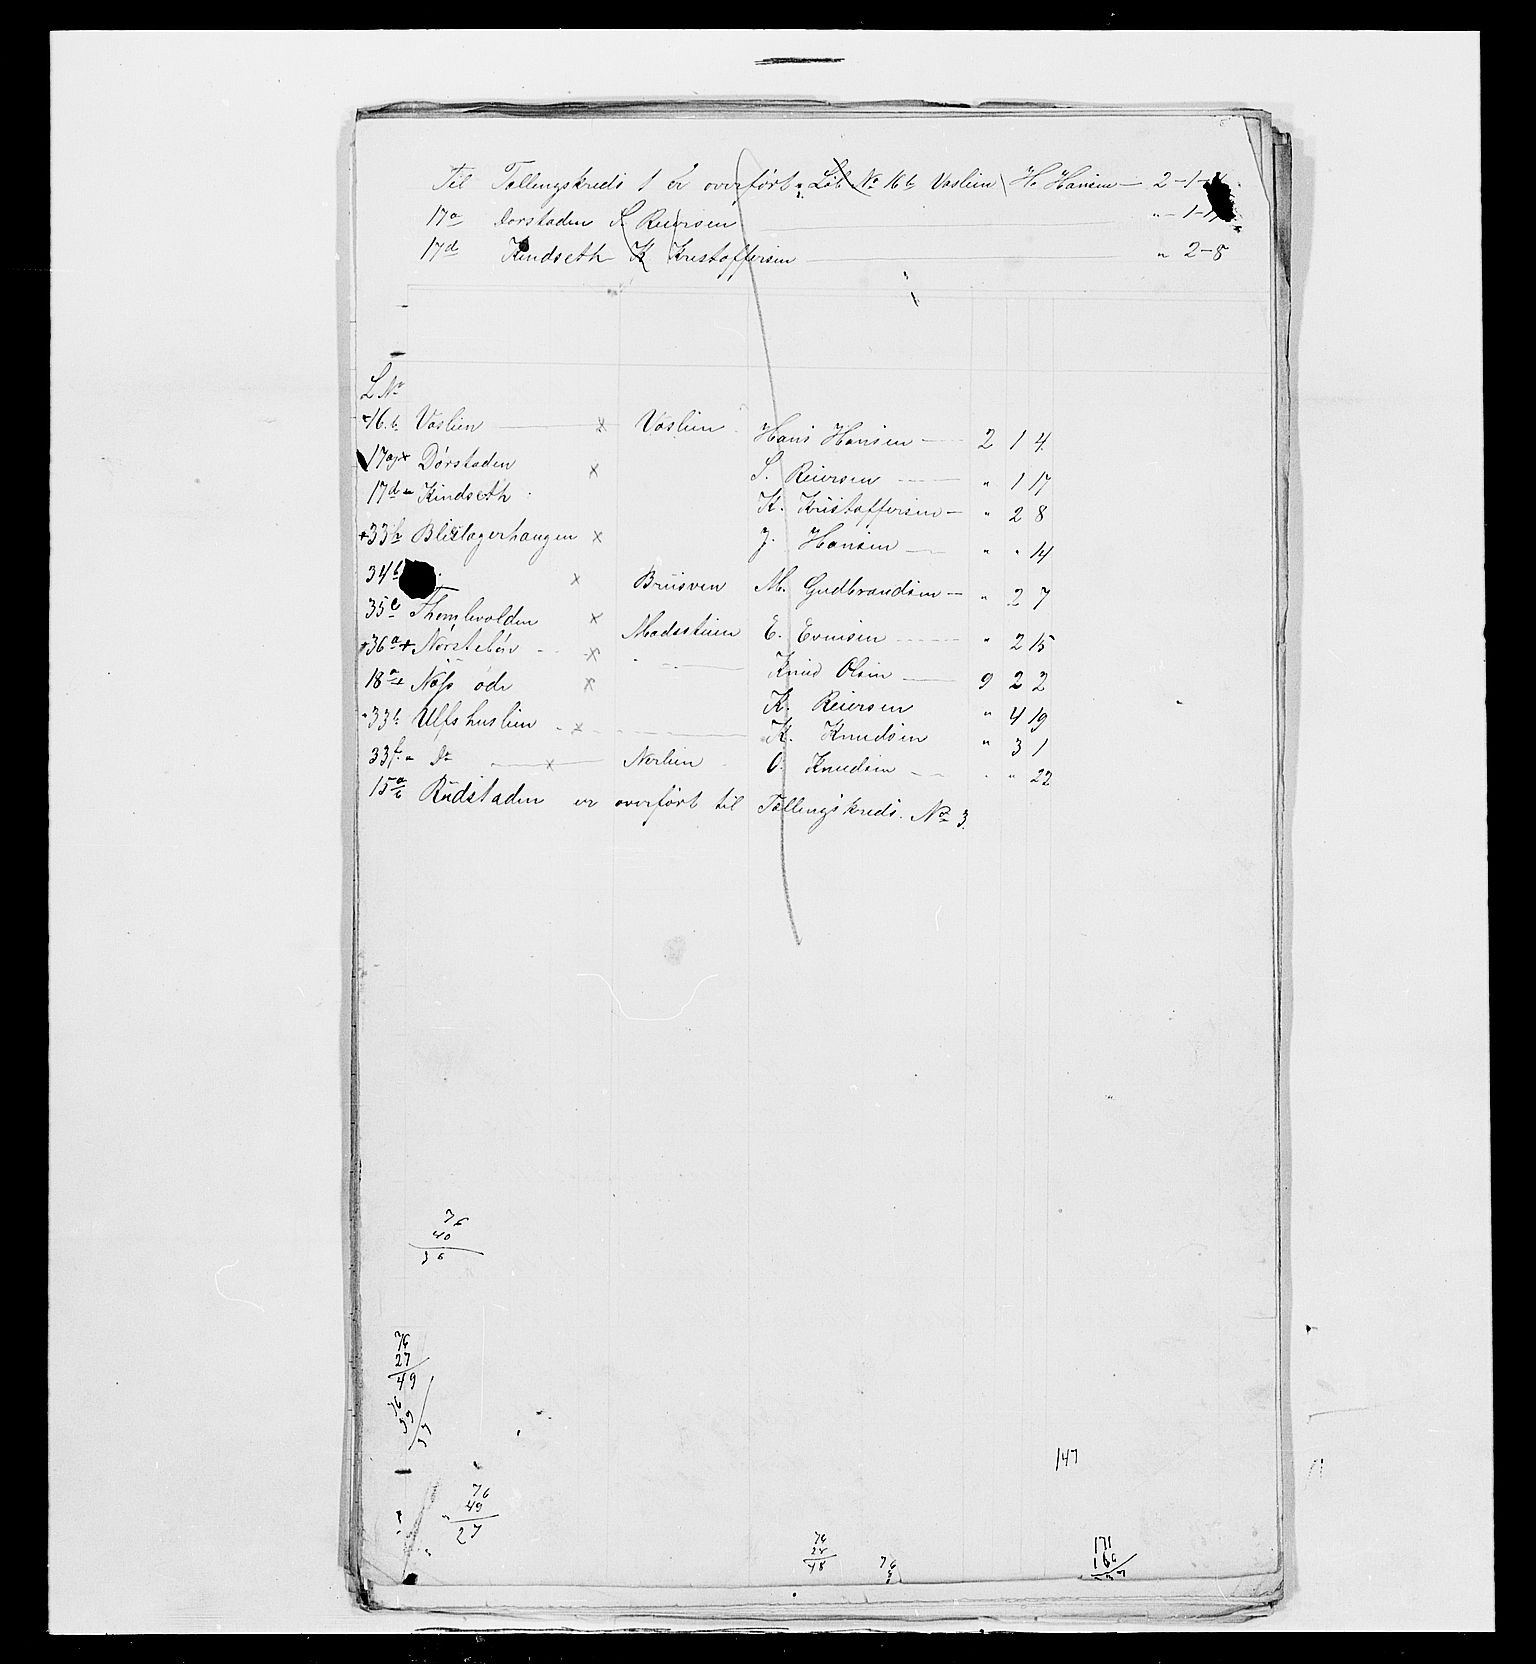 Til Tællingskreds 1 er overført Løb No 16 b Vaslien H. Hansen — 2-1-
17a Dorstaden S. Reiersen — " - 1-17
17d Kindseth K Kristoffersen — " 2-8
L No
16 b Vaslien — x Vaslien Hans Hansen — 2 1 4
17a x Dørstaden x S. Reiersen — " 1 17
17d Kindseth K. Kristoffersen — " 2 8
x 33 x J. Hansen — " " 14
34 b x M. Gudbrandsen — " 2 7
35 x Madsstuen E. Evensen — " 2 15
x 36 a x x — " — Knud Olsen — 9 2 2
18 a x Næss x K. Reiersen " 4 19
33 Ulfshuslien x K. Knudsen " 3 1
33 f " Do — x — Norlien O. Knudsen — " " 22
15 a b Rudstaden er overført til Tællingskreds. No 3.
76
40
36
76
27
49
76
39
37
147
76
49
27
76
28
48
76
171